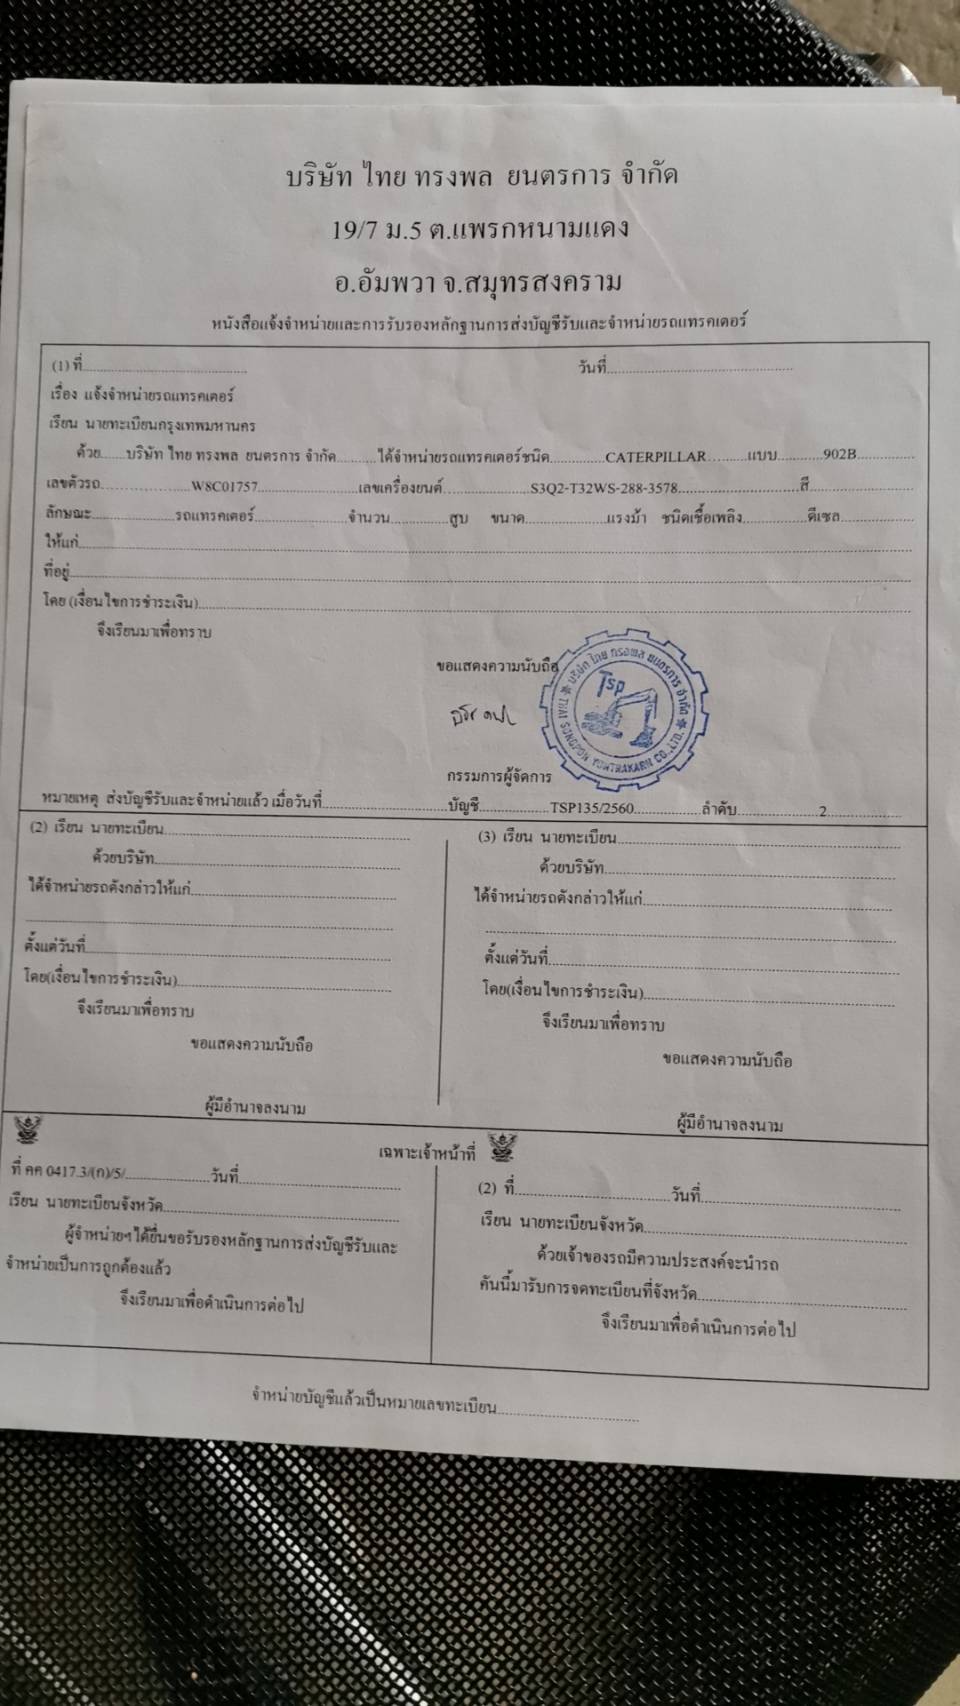 บริษัท ไทย ทรงพล ยนตรการ จำกัด
19/7 ม.5 ต.แพรกหนามแดง
อ.อัมพวา จ.สมุทรสงคราม
หนังสือแจ้งจำหน่ายและการรับรองหลักฐานการส่งบัญชีรับและจำหน่ายรถแทรคเตอร์
(1) ที่.................... วันที่....................
เรื่อง แจ้งจำหน่ายรถแทรคเตอร์
เรียน นายทะเบียนกรุงเทพมหานคร
ด้วย......บริษัท ไทย ทรงพล ยนตรการ จำกัด..........ได้จำหน่ายรถแทรคเตอร์ชนิด..............CATERPILLAR..........แบบ...........902B..............
เลขตัวรถ......................W8C01757.........................เลขเครื่องยนต์.....................S3Q2-T32WS-288-3578..............................สี..........................
ลักษณะ.....................รถแทรคเตอร์......................จำนวน..............สูบ ขนาด....................แรงม้า ชนิดเชื้อเพลิง................ดีเซล..................
ให้แก่....................
ที่อยู่....................
โดย (เงื่อนไขการชำระเงิน)....................
จึงเรียนมาเพื่อทราบ
ขอแสดงความนับถือ
บริษัท ไทย ทรงพล ยนตรการ จำกัด
Tsp
THAI SONGPON YONTRAKARN CO.,LTD.
กรรมการผู้จัดการ
หมายเหตุ ส่งบัญชีรับและจำหน่ายแล้ว เมื่อวันที่..............................บัญชี.................TSP135/2560.................ลำดับ....................2..................
(2) เรียน นายทะเบียน....................
ด้วยบริษัท....................
ได้จำหน่ายรถดังกล่าวให้แก่....................
....................
ตั้งแต่วันที่....................
โดย(เงื่อนไขการชำระเงิน)....................
จึงเรียนมาเพื่อทราบ
ขอแสดงความนับถือ
ผู้มีอำนาจลงนาม
(3) เรียน นายทะเบียน....................
ด้วยบริษัท....................
ได้จำหน่ายรถดังกล่าวให้แก่....................
....................
ตั้งแต่วันที่....................
โดย(เงื่อนไขการชำระเงิน)....................
จึงเรียนมาเพื่อทราบ
ขอแสดงความนับถือ
ผู้มีอำนาจลงนาม
เฉพาะเจ้าหน้าที่
ที่ คค 0417.3/(ก)/5/....................วันที่....................
เรียน นายทะเบียนจังหวัด....................
ผู้จำหน่ายฯได้ยื่นขอรับรองหลักฐานการส่งบัญชีรับและ
จำหน่ายเป็นการถูกต้องแล้ว
จึงเรียนมาเพื่อดำเนินการต่อไป
(2) ที่....................วันที่....................
เรียน นายทะเบียนจังหวัด....................
ด้วยเจ้าของรถมีความประสงค์จะนำรถ
คันนี้มารับการจดทะเบียนที่จังหวัด....................
จึงเรียนมาเพื่อดำเนินการต่อไป
จำหน่ายบัญชีแล้วเป็นหมายเลขทะเบียน....................